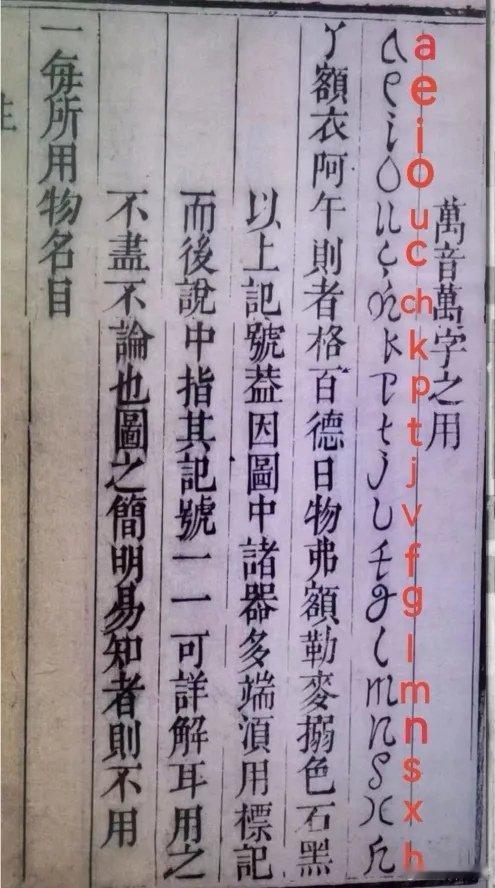 萬音萬字之用
a e i o u c ch k p t j v f g l m n s x h
a e i o u c ch k p t j v f g l m n s x h
丫額衣阿午則者格百德日物弗額勒麥搦色石黑
以上記號葢因圖中諸器多端湏用標記
而後說中指其記號一一可詳解耳用之
不盡不論也圖之簡明易知者則不用
一每所用物名目